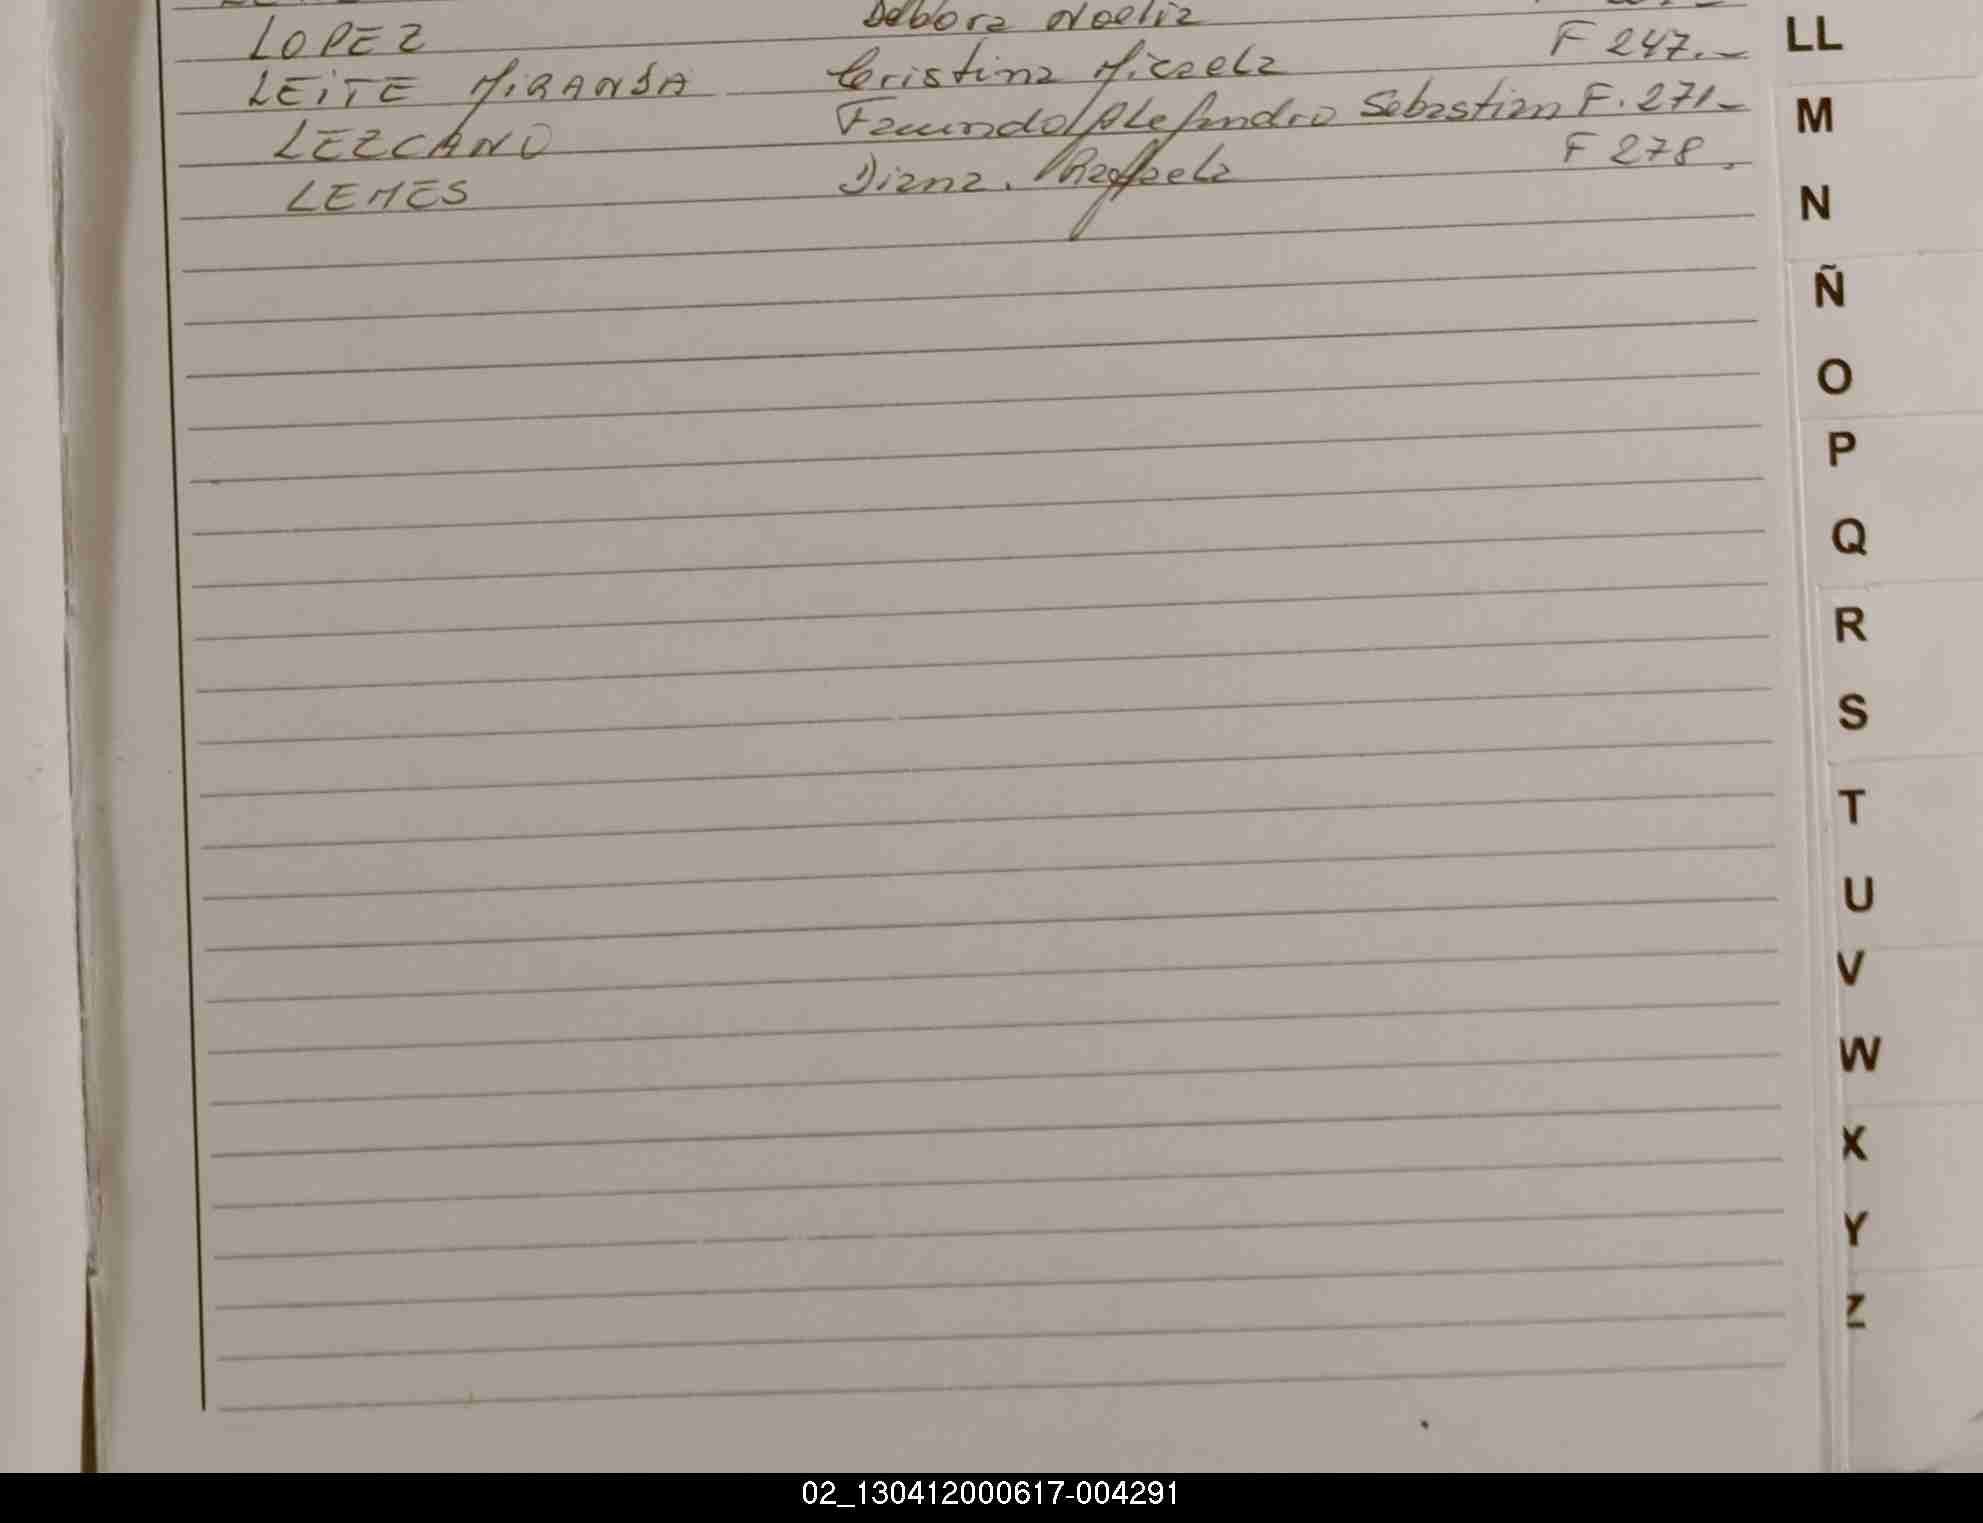 LOPEZ Debora Noelia
LEITE MIRANDA Cristina Micaela F 247.-
LEZCANO Facundo Alejandro Sebastian F. 271-
LEMES Diana. Raffaela F 278.
LL
M
N
Ñ
O
P
Q
R
S
T
U
V
W
X
Y
Z
02_130412000617-004291